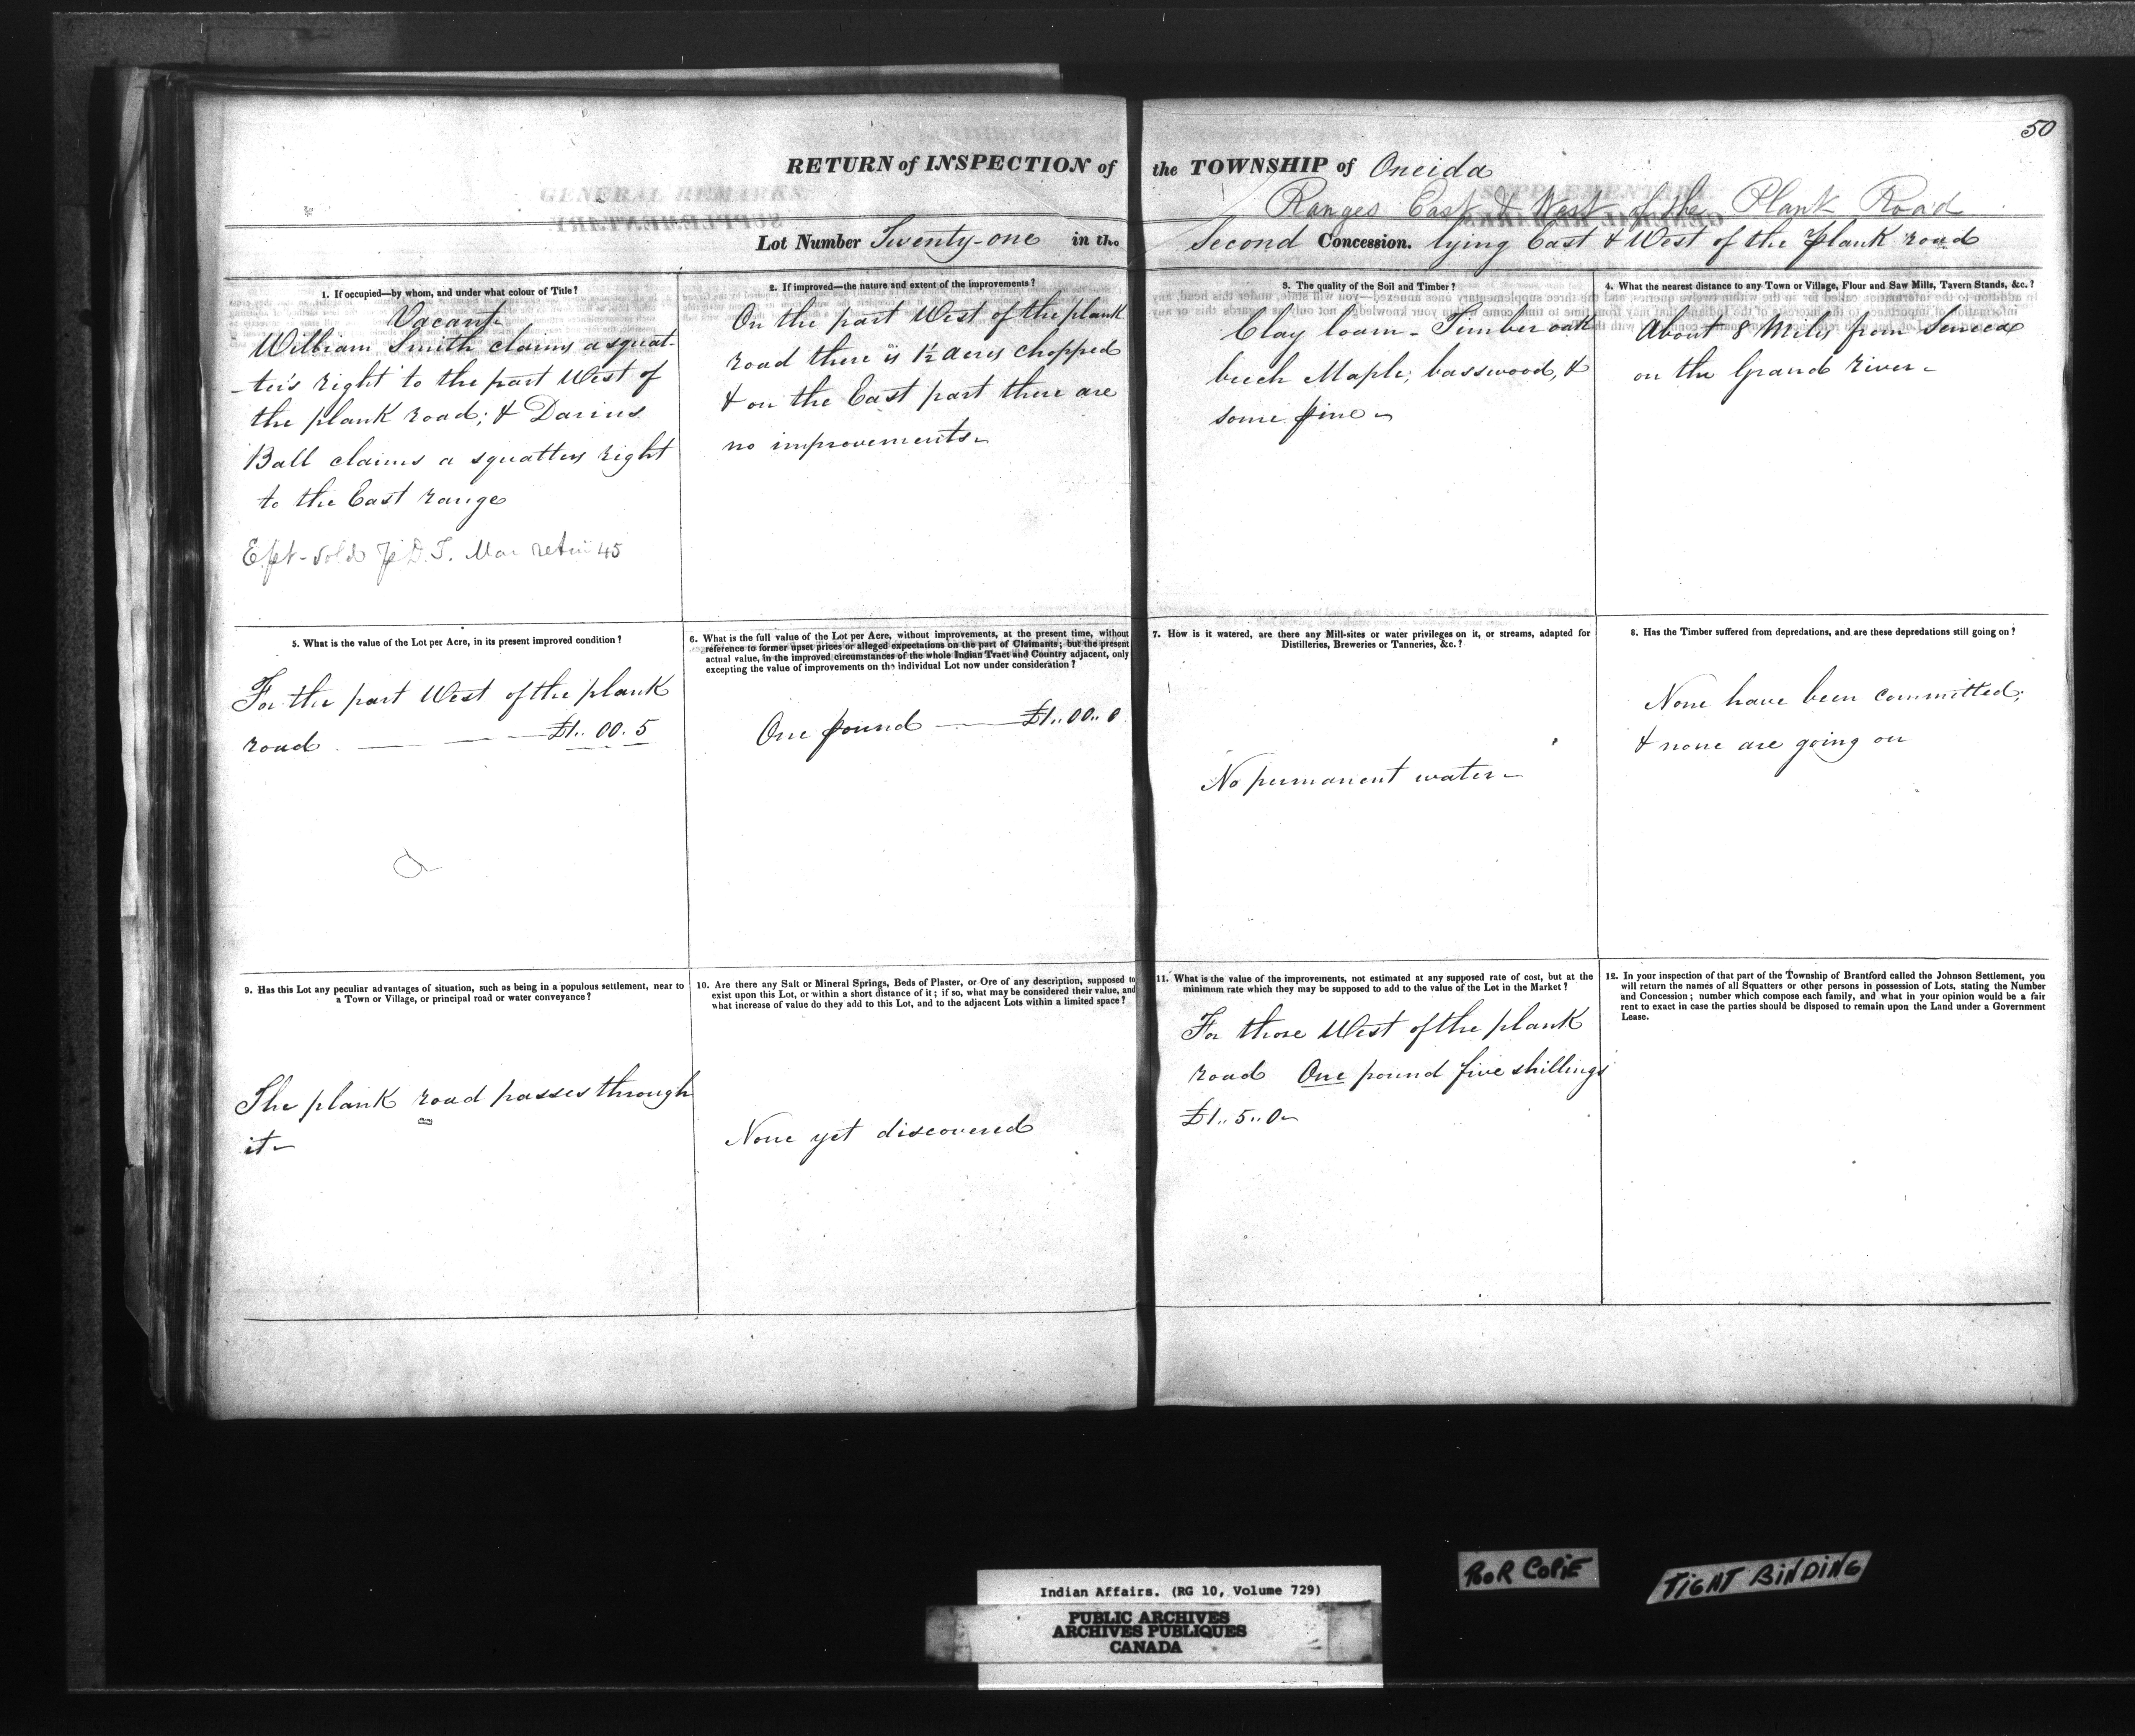 50
RETURN of INSPECTION of the TOWNSHIP of Oneida
Ranges East & West of the Plank Road
Lot Number Twenty-one in the Second Concession. lying East & West of the plank road
1. If occupied—by whom, and under what colour of Title?
Vacant
William Smith claims a squat-
-ter's right to the part West of
the plank road; & Darius
Ball claims a squatters right
to the East range
sold D.T. 45
2. If improved—the nature and extent of the improvements?
On the part West of the plank
road there is 1½ acres chopped
& on the East part there are
no improvements
3. The quality of the Soil and Timber?
Clay loam - Timber oak
beech Maple, basswood, &
some pine
4. What the nearest distance to any Town or Village, Flour and Saw Mills, Tavern Stands, &c.?
About 8 Miles from Seneca
on the Grand river
5. What is the value of the Lot per Acre, in its present improved condition?
For the part West of the plank
road £1.. 00. 5
6. What is the full value of the Lot per Acre, without improvements, at the present time, without
reference to former upset prices or alleged expectations on the part of Claimants; but the present
actual value, in the improved circumstances of the whole Indian Tract and Country adjacent, only
excepting the value of improvements on the individual Lot now under consideration?
One pound £1.. 00.. 0
7. How is it watered, are there any Mill-sites or water privileges on it, or streams, adapted for
Distilleries, Breweries or Tanneries, &c.?
No permanent water
8. Has the Timber suffered from depredations, and are these depredations still going on?
None have been committed;
& none are going on
9. Has this Lot any peculiar advantages of situation, such as being in a populous settlement, near to
a Town or Village, or principal road or water conveyance?
The plank road passes through
it
10. Are there any Salt or Mineral Springs, Beds of Plaster, or Ore of any description, supposed to
exist upon this Lot, or within a short distance of it; if so, what may be considered their value, and
what increase of value do they add to this Lot, and to the adjacent Lots within a limited space?
None yet discovered
11. What is the value of the improvements, not estimated at any supposed rate of cost, but at the
minimum rate which they may be supposed to add to the value of the Lot in the Market?
For those West of the plank
road One pound five shillings
£1.. 5.. 0
12. In your inspection of that part of the Township of Brantford called the Johnson Settlement, you
will return the names of all Squatters or other persons in possession of Lots, stating the Number
and Concession; number which compose each family, and what in your opinion would be a fair
rent to exact in case the parties should be disposed to remain upon the Land under a Government
Lease.
Indian Affairs. (RG 10, Volume 729)
PUBLIC ARCHIVES
ARCHIVES PUBLIQUES
CANADA
POOR COPIE
TIGHT BINDING